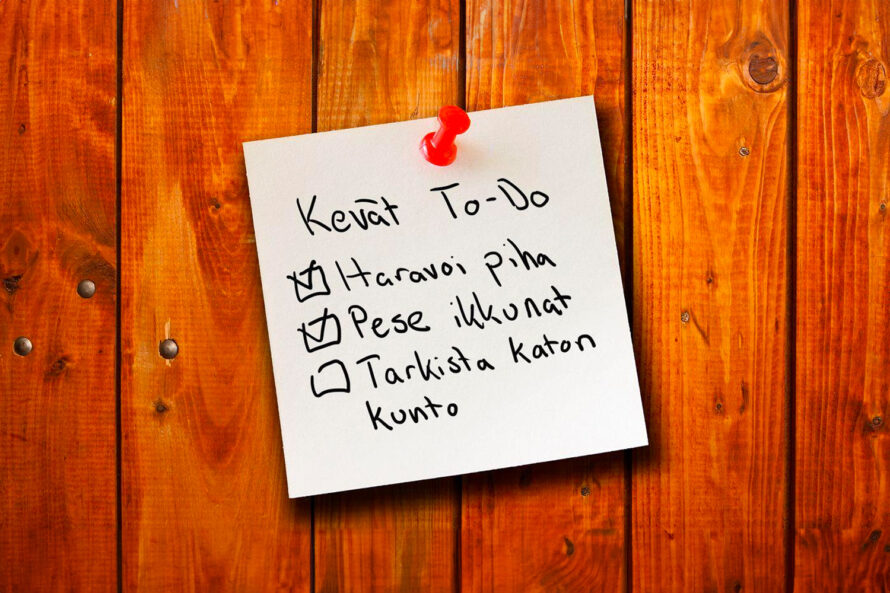 Kevät To-Do
☑ Haravoi piha
☑ Pese ikkunat
☐ Tarkista katon
kunto